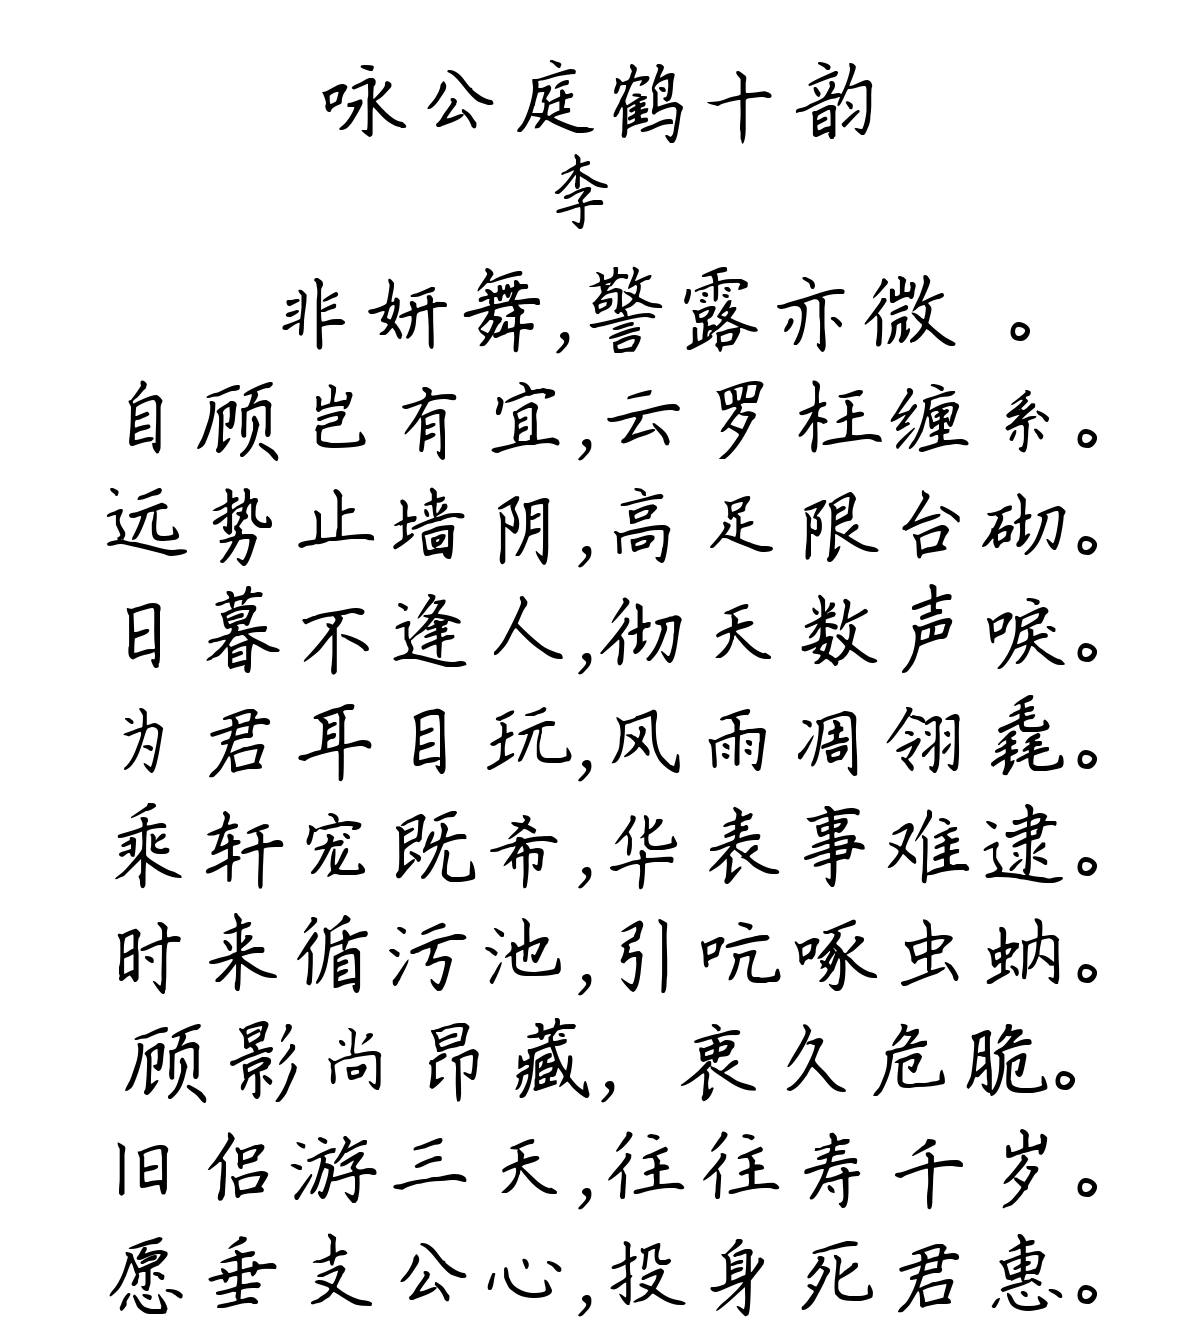 咏公庭鹤十韵
李
非妍舞,警露亦微。
自顾岂有宜,云罗枉缠系。
远势止墙阴,高足限台砌。
日暮不逢人,彻天数声唳。
为君耳目玩,风雨凋翎毳。
乘轩宠既希,华表事难逮。
时来循污池,引吭啄虫蚋。
顾影尚昂藏,衷久危脆。
旧侣游三天,往往寿千岁。
愿垂支公心,投身死君惠。